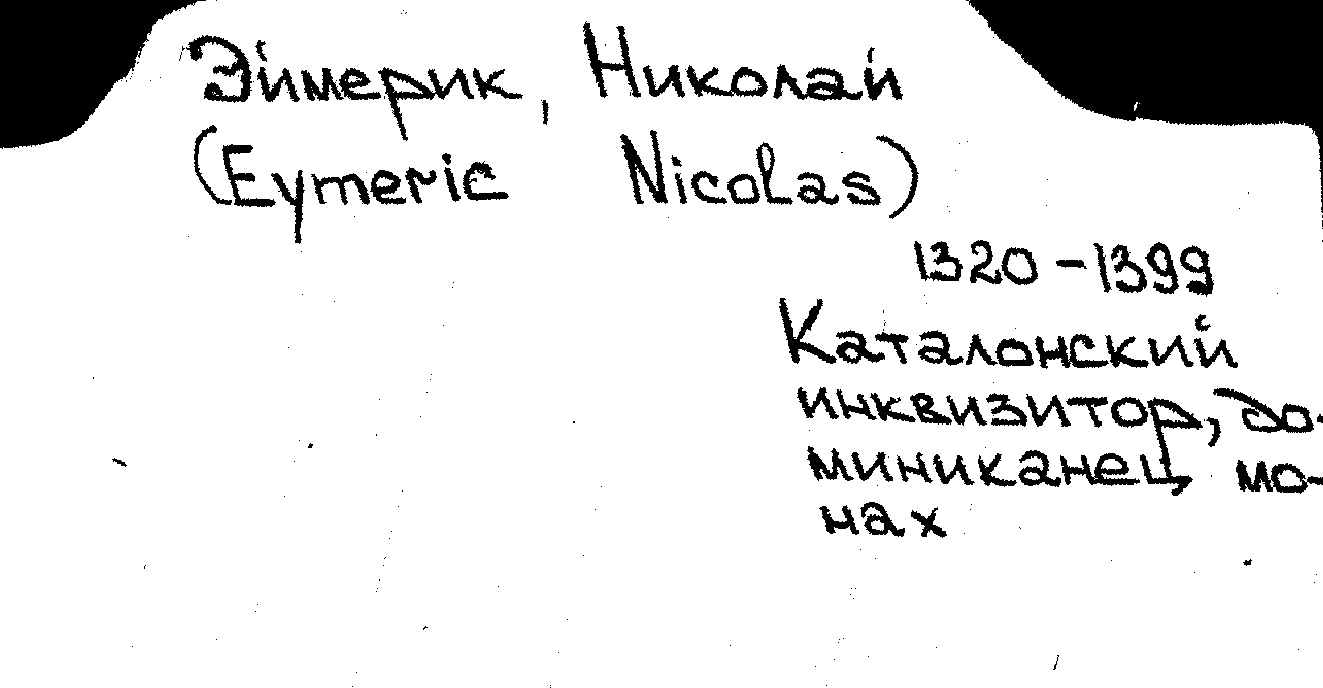 Эймерик, Николай
(Eymeric Nicolas)
1320-1399
Каталонский
инквизитор, до-
миниканец, мо-
нах